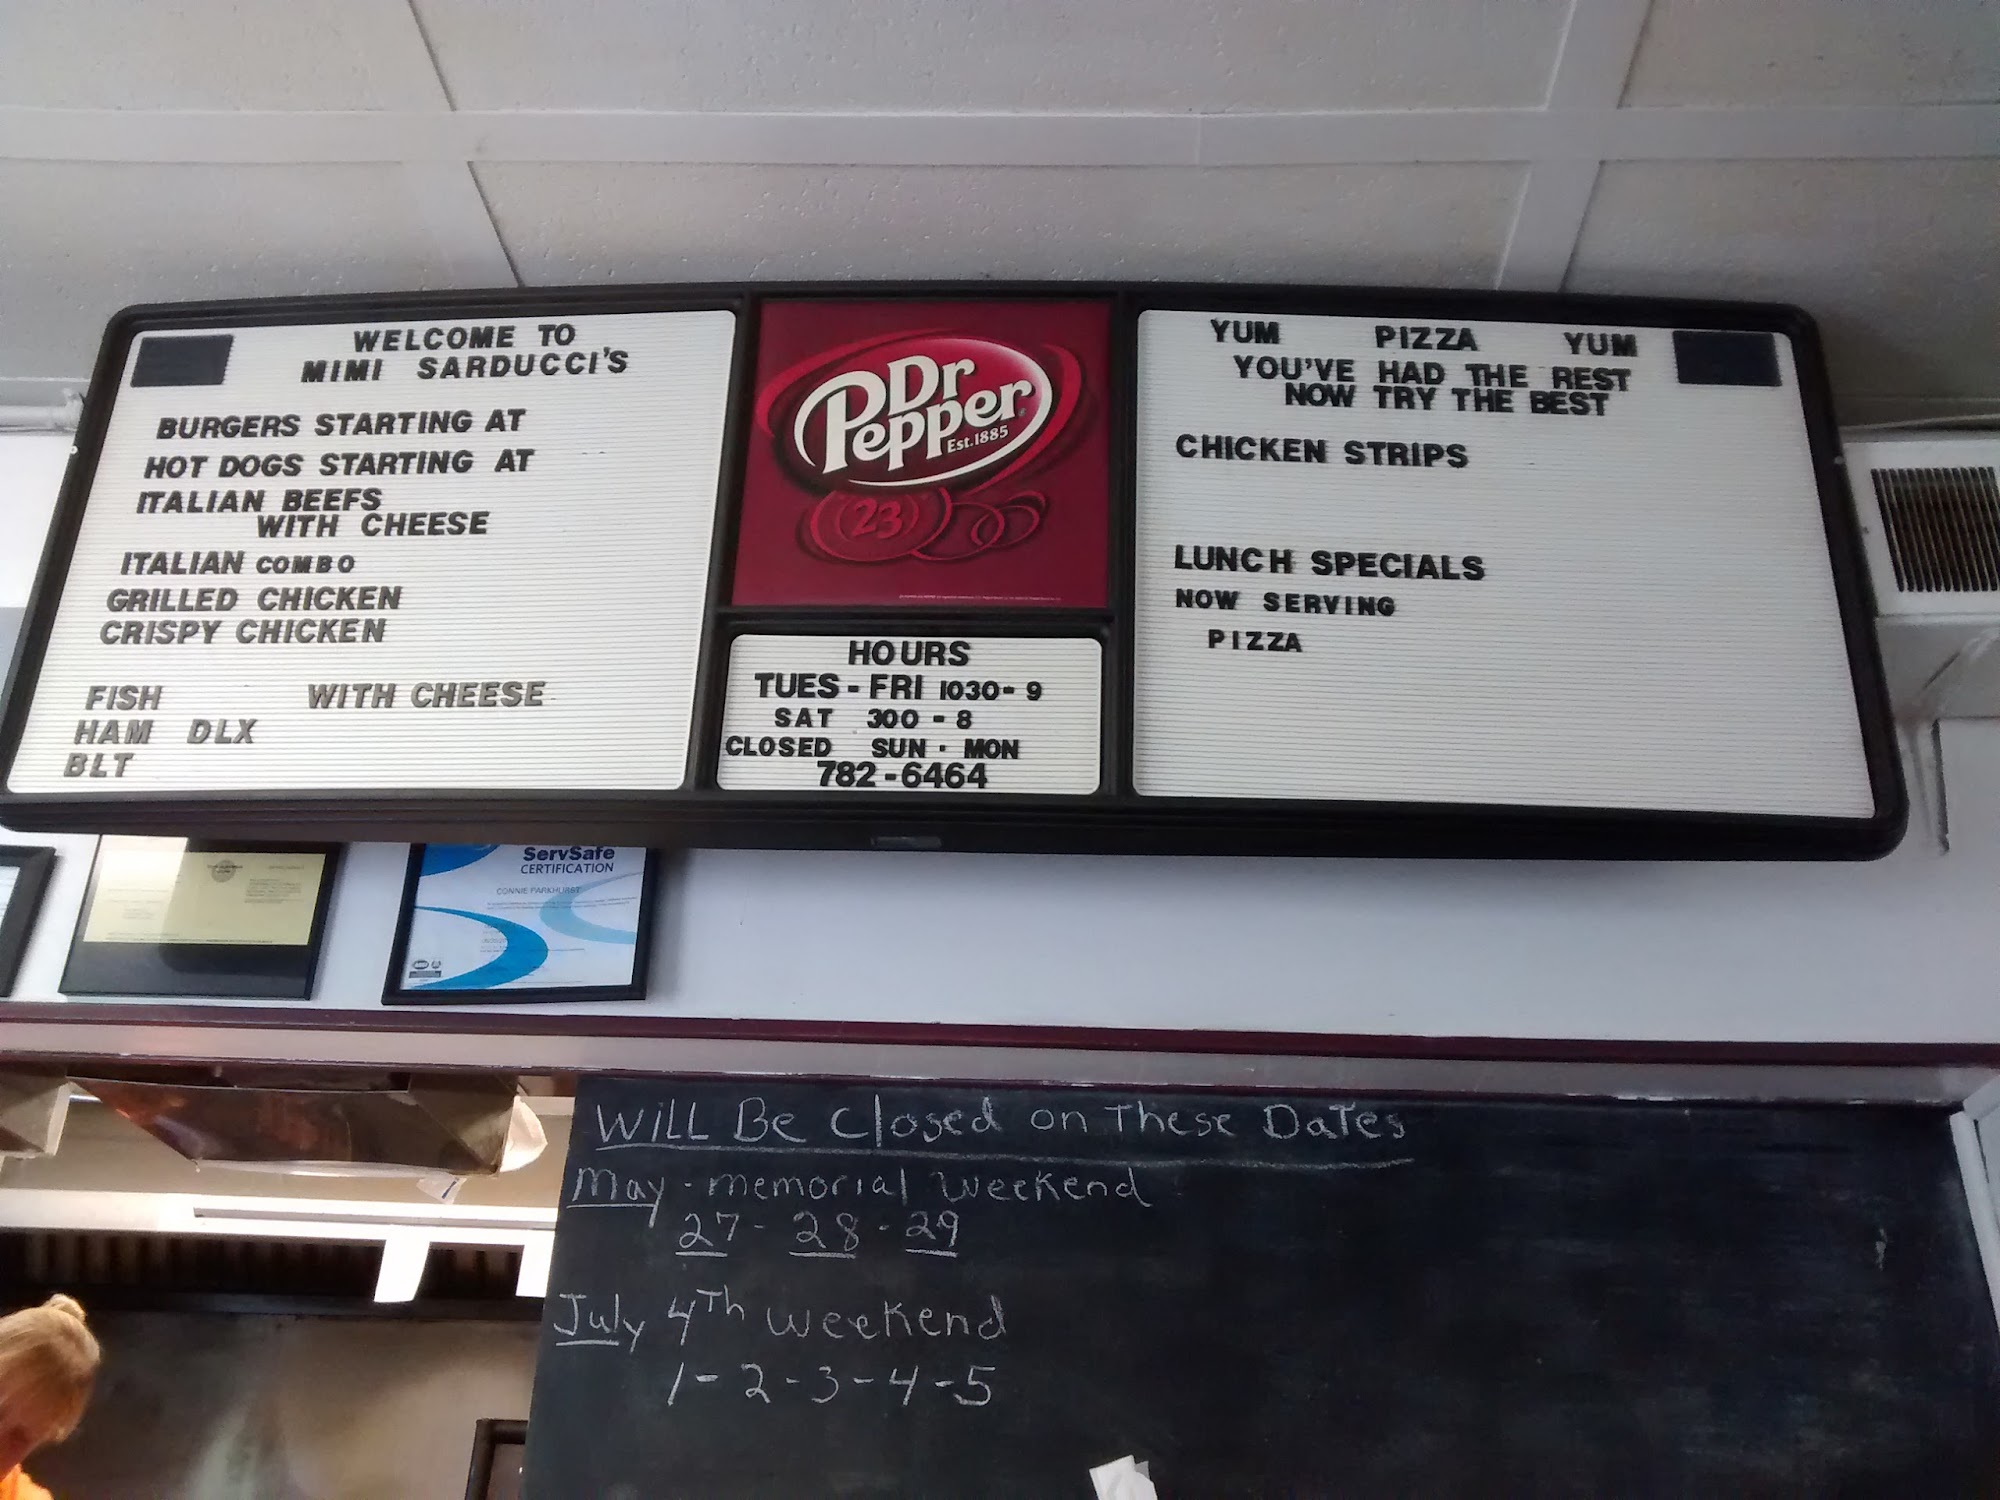 WELCOME TO
MIMI SARDUCCI'S
BURGERS STARTING AT
HOT DOGS STARTING AT
ITALIAN BEEFS
WITH CHEESE
ITALIAN COMBO
GRILLED CHICKEN
CRISPY CHICKEN
FISH WITH CHEESE
HAM DLX
BLT
Dr
Pepper
Est.1885
23
HOURS
TUES - FRI 1030- 9
SAT 300 - 8
CLOSED SUN - MON
782-6464
YUM PIZZA YUM
YOU'VE HAD THE REST
NOW TRY THE BEST
CHICKEN STRIPS
LUNCH SPECIALS
NOW SERVING
PIZZA
ServSafe
CERTIFICATION
CONNIE PARKHURST
WiLL Be Closed on These DaTes
May - memorial weekend
27 - 28 - 29
July 4Th weekend
1 - 2 - 3 - 4 - 5